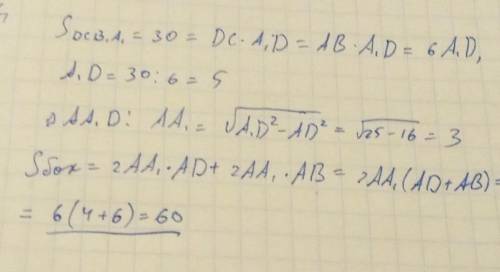 S DCB₁A₁ = 30 = DC · A₁D = AB · A₁D = 6 A₁D,
A₁D = 30 : 6 = 5
△ AA₁D: AA₁ = √(A₁D² − AD²) = √(25 − 16) = 3
Sбок = 2AA₁ · AD + 2AA₁ · AB = 2AA₁ (AD + AB) =
= 6(4+6) = 60